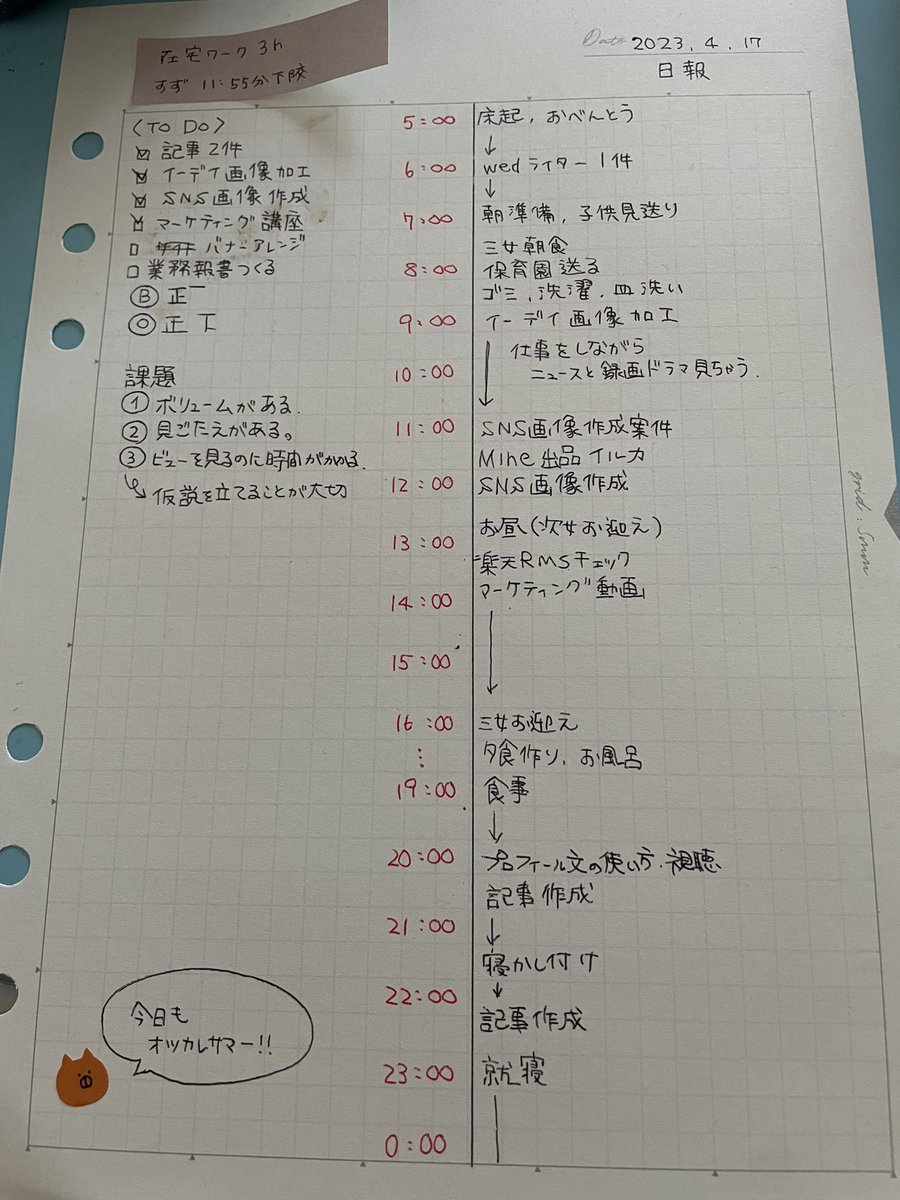 在宅ワーク 3h
すず 11:55分下校
Date 2023.4.17
日報
〈TO DO〉
☑ 記事2件
☑ イーデイ画像加工
☑ SNS画像作成
☑ マーケティング講座
□ バナーアレンジ
□ 業務報書つくる
Ⓑ 正一
Ⓞ 正丅
課題
① ボリュームがある.
② 見ごたえがある。
③ ビューを見るのに時間がかかる.
↳ 仮説を立てることが大切
今日も
オツカレサマー!!
5:00 床起, おべんとう
↓
6:00 wedライター 1件
↓
7:00 朝準備, 子供見送り
三女朝食
8:00 保育園送る
ゴミ, 洗濯, 皿洗い
9:00 イーデイ画像加工
仕事をしながら
ニュースと録画ドラマ見ちゃう.
10:00
↓
11:00 SNS画像作成案件
Mine出品イルカ
12:00 SNS画像作成
お昼(次女お迎え)
13:00
楽天RMSチェック
14:00 マーケティング動画
15:00
↓
16:00 三女お迎え
⋮ 夕食作り, お風呂
19:00 食事
↓
20:00 プロフィール文の使い方.視聴
記事作成
21:00
↓
寝かし付け
↓
22:00 記事作成
23:00 就寝
0:00
grid: 5mm